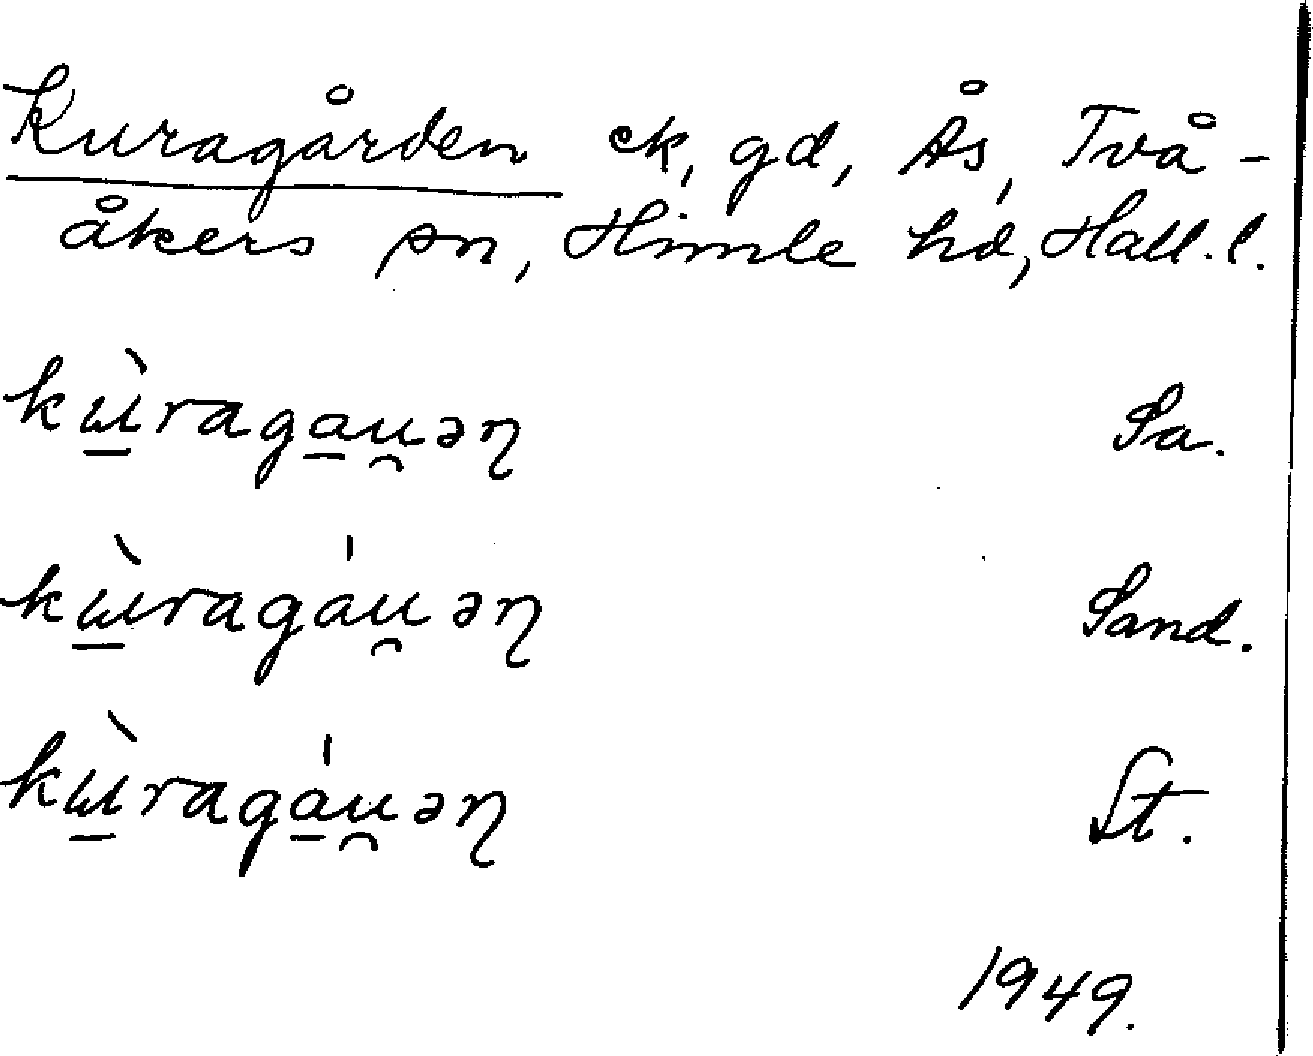 Kuragården ek, gd, Ås, Två-
åkers sn, Himle hd, Hall. l.
kɯ̲̀raga̲u̯əɳ Sa.
kɯ̲̀ragáu̯əɳ Sand.
kɯ̲̀raga̲̍u̯əɳ St.
1949.